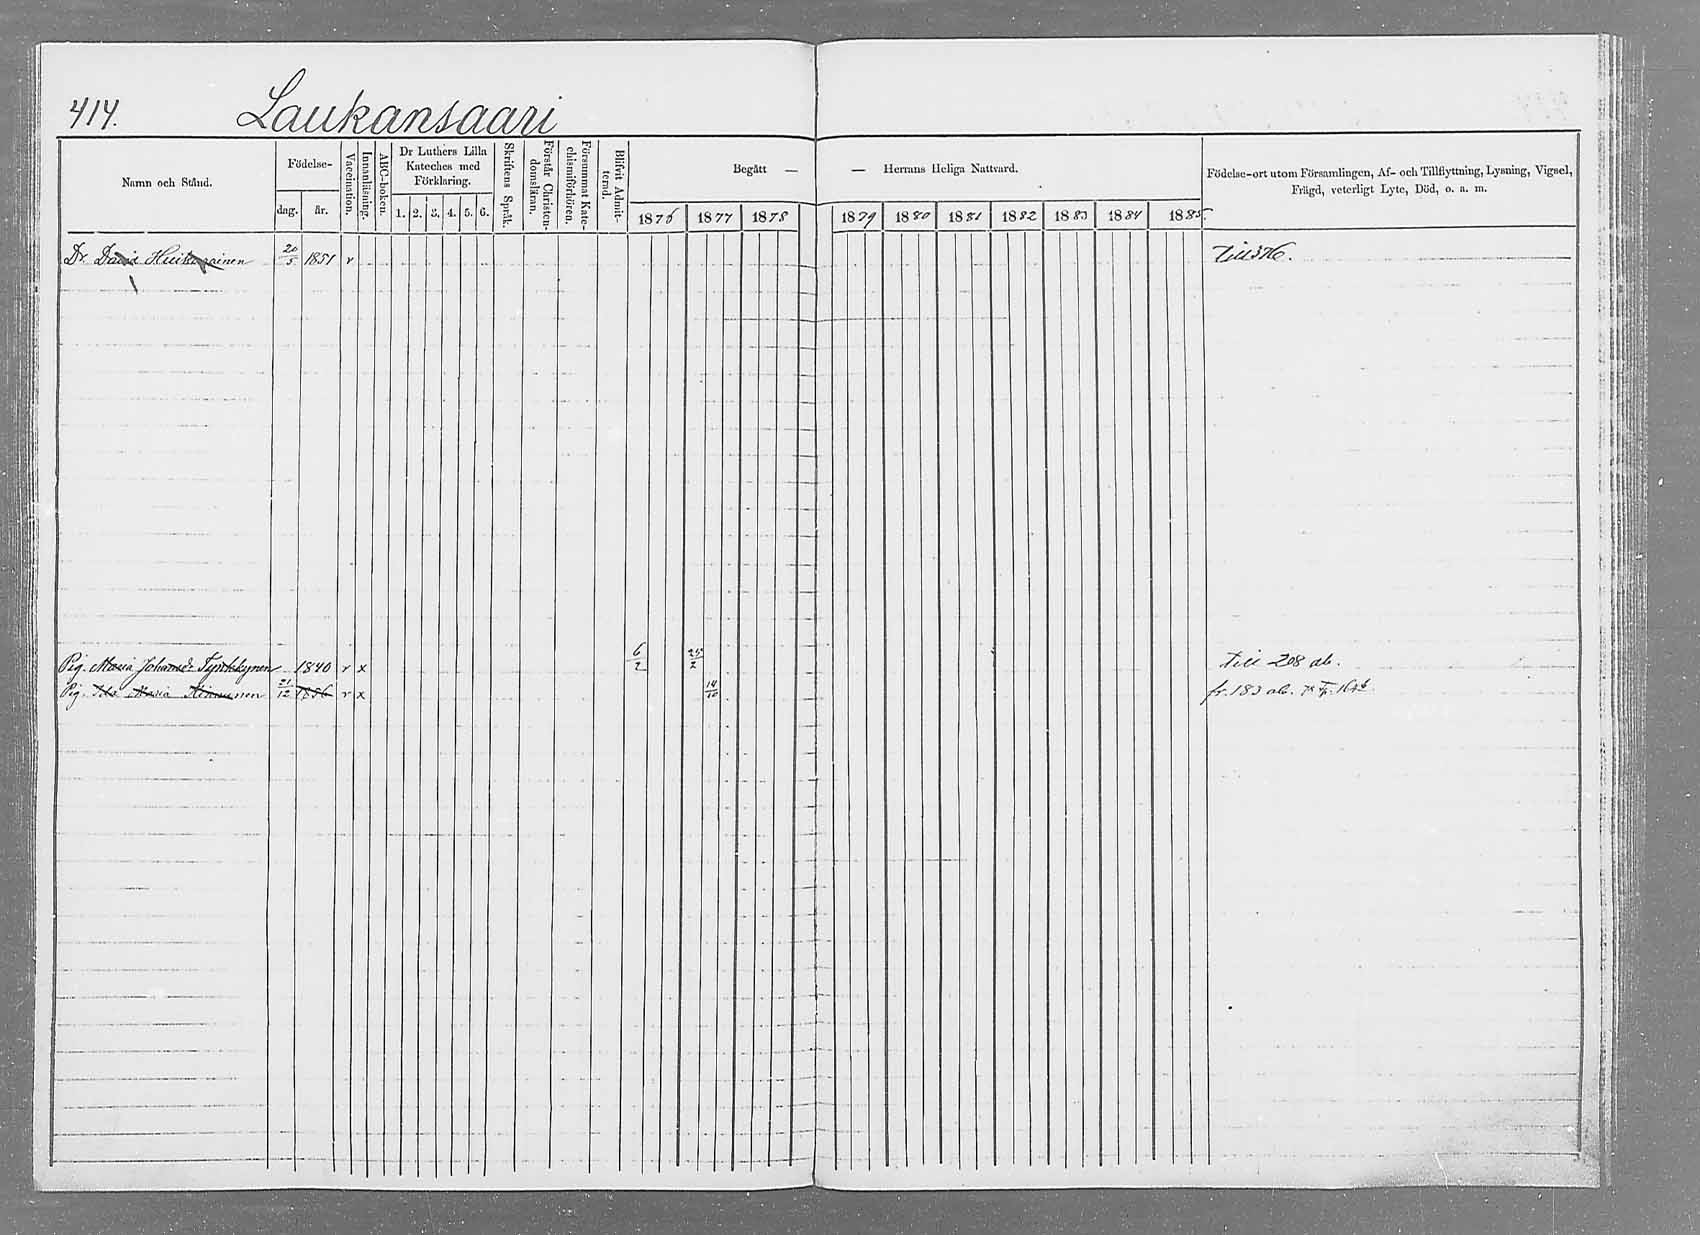 414. Laukansaari
Namn och Stånd.
Födelse-
dag. år.
Vaccination.
Innanläsning.
ABC-boken.
Dr Luthers Lilla
Kateches med
Förklaring.
1. 2. 3. 4. 5. 6.
Skriftens Språk.
Förstår Christen-
domsläran.
Försummat Kate-
chismiförhören.
Blifvit Admit-
terad.
Begått — — Herrans Heliga Nattvard.
1876 1877 1878 1879 1880 1881 1882 1883 1884 1885.
Födelse-ort utom Församlingen, Af- och Tillflyttning, Lysning, Vigsel,
Frägd, veterligt Lyte, Död, o. a. m.
Dr. David 20/5 1851 v till 376.
Pig. Maria Johansdr Tynkkynen 1840 v x 6/2 25/2 till 208 ab.
Pig. Ida Maria 21/12 1856 v x 14/10 fr. 183 ab.